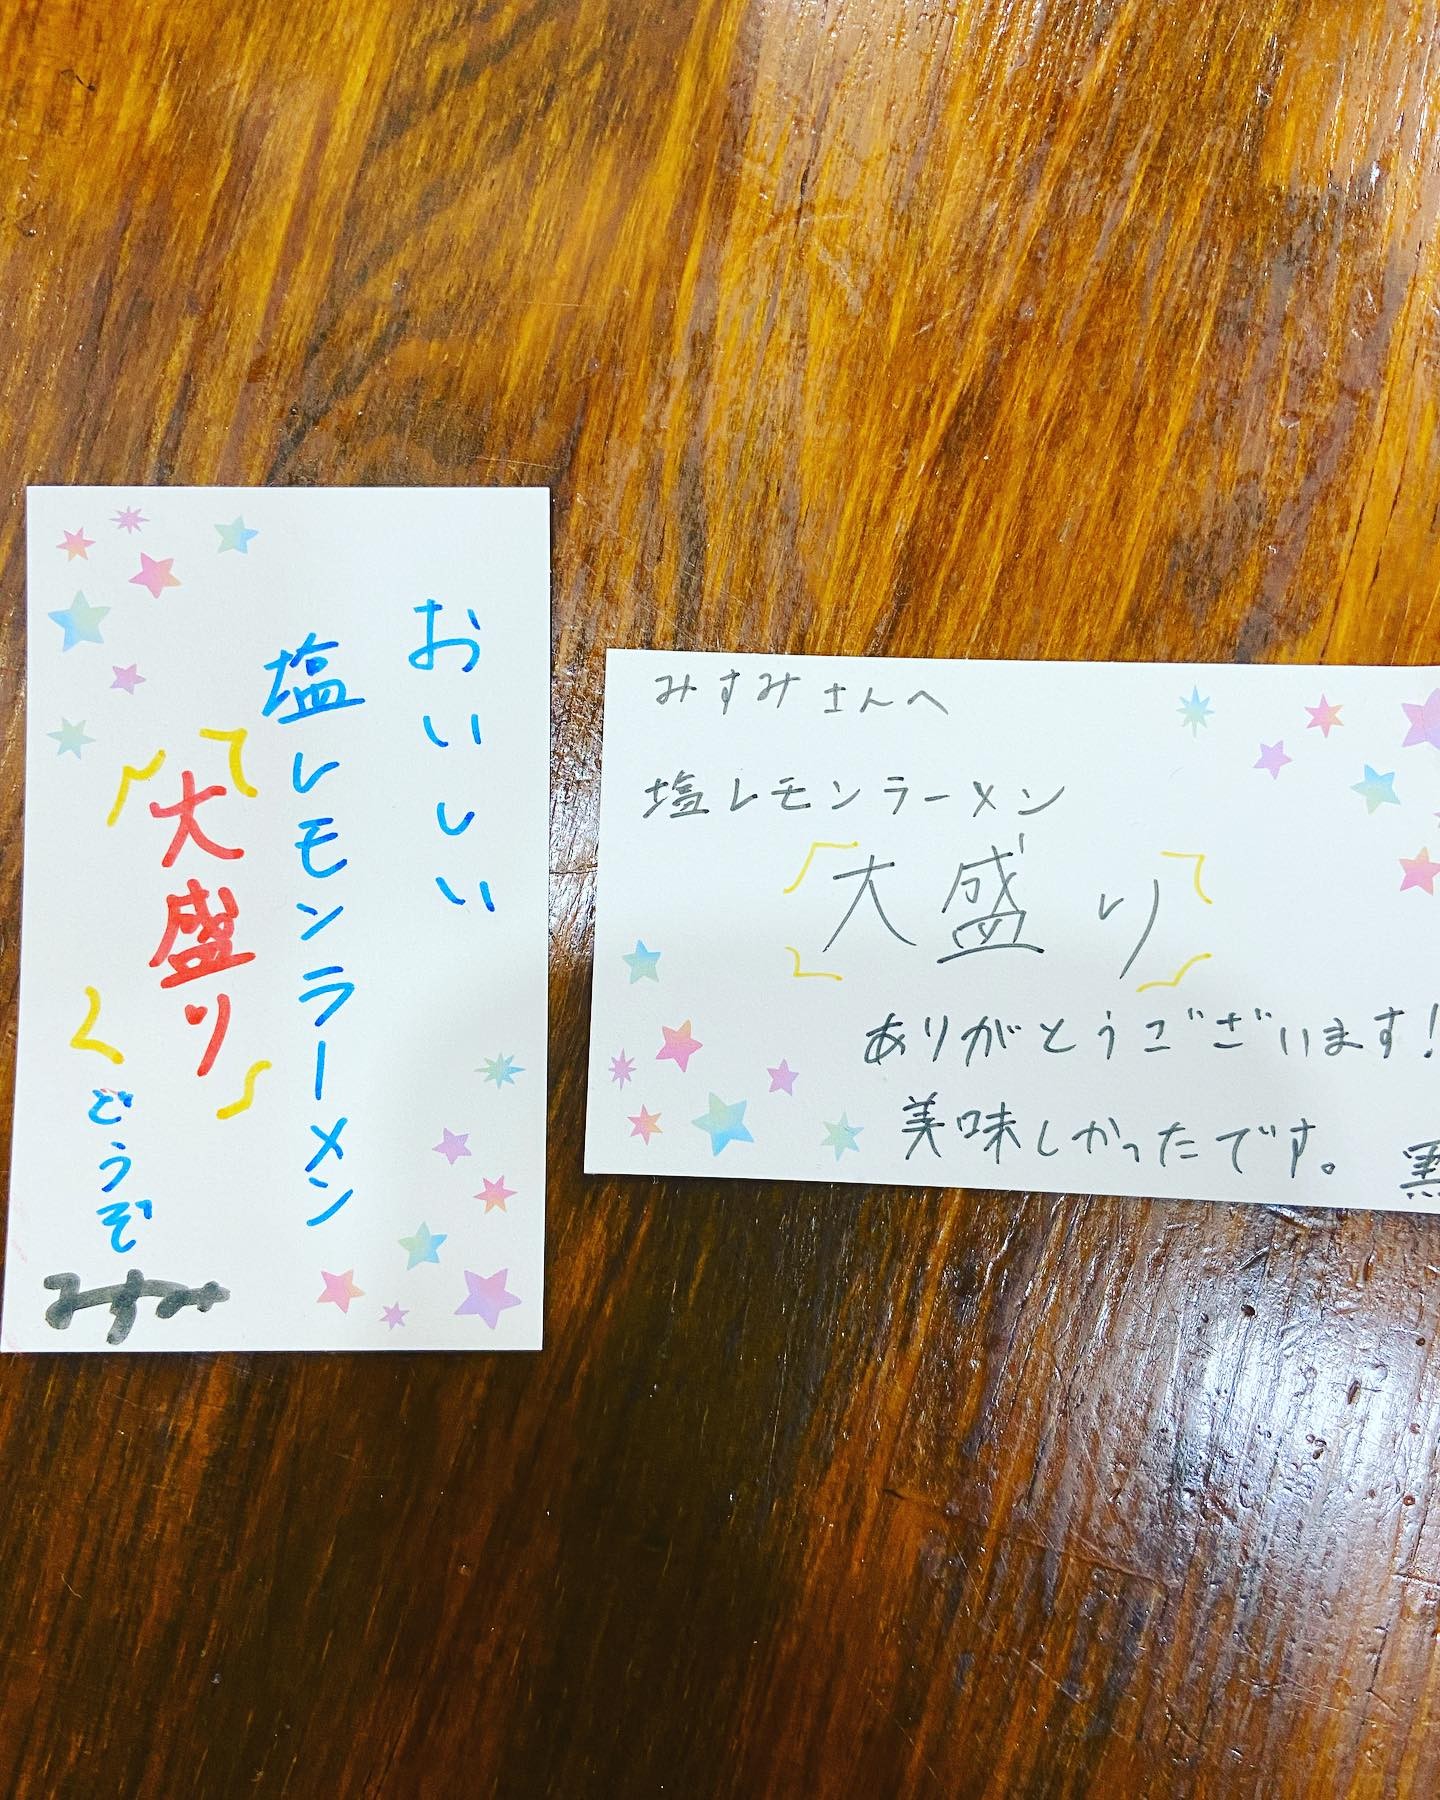 おいしい
塩レモンラーメン
大盛り
どうぞ
みすみ
みすみさんへ
塩レモンラーメン
大盛り
ありがとうございます!
美味しかったです。